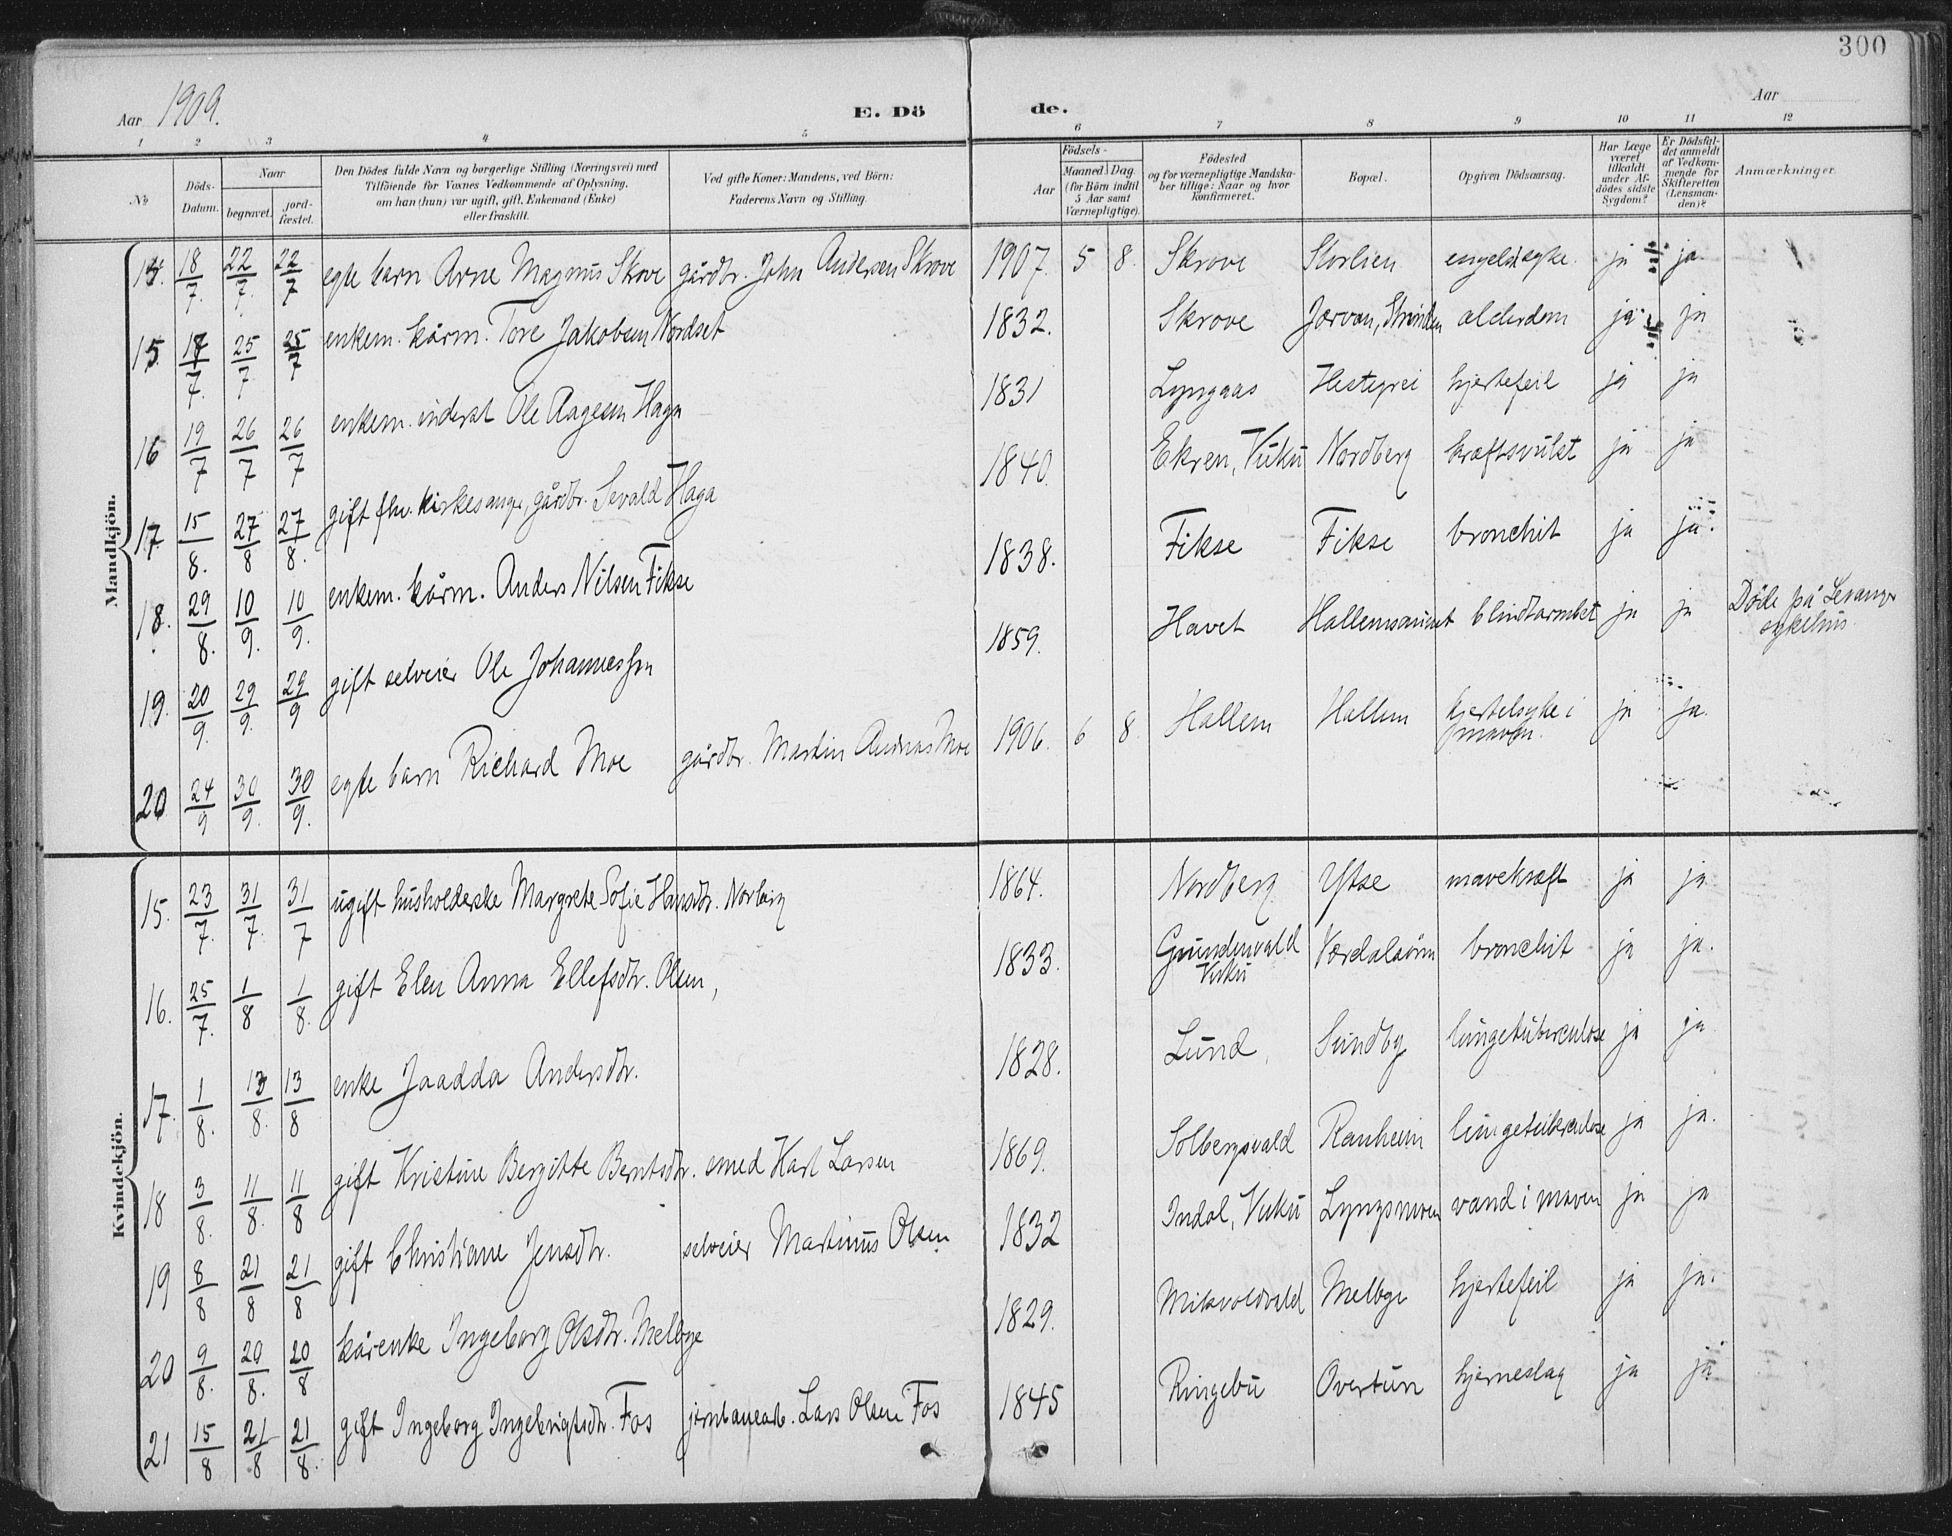 300
Aar 1909.
E. Dö
de.
Aar
1 2 3 4 5 6 7 8 9 10 11 12
No
Döds-Datum.
Naar
begravet.
jord-fæstet.
Den Dödes fulde Navn og borgerlige Stilling (Næringsvei) med
Tilföiende for Voxnes Vedkommende af Oplysning,
om han (hun) var ugift, gift, Enkemand (Enke)
eller fraskilt.
Ved gifte Koner: Mandens, ved Börn:
Faderens Navn og Stilling.
Födsels-
Aar
Maaned
Dag
(for Börn indtil 5 Aar samt Værnepligtige).
Födested
og for værnepligtige Mandskaber tillige: Naar og hvor konfirmeret.
Bopæl.
Opgiven Dödsaarsag.
Har Læge været tilkaldt under Afdödes sidste Sygdom?
Er Dödsfaldet anmeldt af Vedkommende for Skifteretten (Lensmanden)?
Anmærkninger.
Mandkjön.
14. 18/7. 22/7. 22/7 egte barn Arne Magnus Skove gårdbr. John Andersen Skrove 1907. 5 8. Skrove Storlien engelsk syke. ja ja
15. 17/7. 25/7 25/7 enkem. kårm. Tore Jakobsen Nordset 1832. Skrove Jervan, Strinden alderdom ja ja
16 19/7 26/7 26/7 enkem. inderst Ole Aagesen Haga 1831 Lyngaas Hestegrei hjertefeil ja ja
17. 15/8. 27/8 27/8. gift fhv. kirkesanger, gårdbr. Sevald Haga 1840. Ekren, Vuku Nordberg kræftsvulst ja ja
18. 29/8. 10/9. 10/9. enkem. kårm. Anders Nilsen Fikse 1838. Fikse Fikse bronchit ja ja.
19. 20/9. 29/9. 29/9 gift selveier Ole Johannessen 1859. Havet Hallemsaunet blindtarmbet ja ja Döde på Levanger sykehus.
20 24/9 30/9. 30/9. egte barn Richard Moe gårdbr. Martin Andreas Moe 1906. 6 8. Hallem Hallem kjertelsyke i maven. ja ja.
Kvindekjön.
15. 23/7. 31/7. 31/7 ugift husholderske Margrete Sofie Hansdtr. Norberg 1864. Nordberg Ytse mavekræft ja ja
16. 25/7. 1/8 1/8. gift Elen Anna Ellefsdtr. Olsen, 1833. Grundenvald Vuku Værdalsören bronchit ja ja.
17. 1/8. 13/8. 13/8 enke Jaadda Andersdtr. 1828. Lund, Sundby lungetuberculose ja ja
18 3/8. 11/8. 11/8 gift Kristine Bergitte Berntsdtr. smed Karl Larsen 1869. Solbergsvald Ranheim lungetuberculose ja ja.
19 8/8 21/8 21/8 gift Christiane Jensdtr. selveier Martinus Olsen 1832 Indal, Vuku Lyngsmoen vand i maven ja ja
20 9/8. 20/8. 20/8 kårenke Ingeborg Olsdtr. Melbye 1829. Mikvoldvald Melbye hjertefeil ja ja.
21 15/8 21/8 21/8. gift Ingeborg Ingebrigtsdtr. Fos jernbanearb. Lars Olsen Fos 1845 Ringebu Overtun hjerneslag ja ja